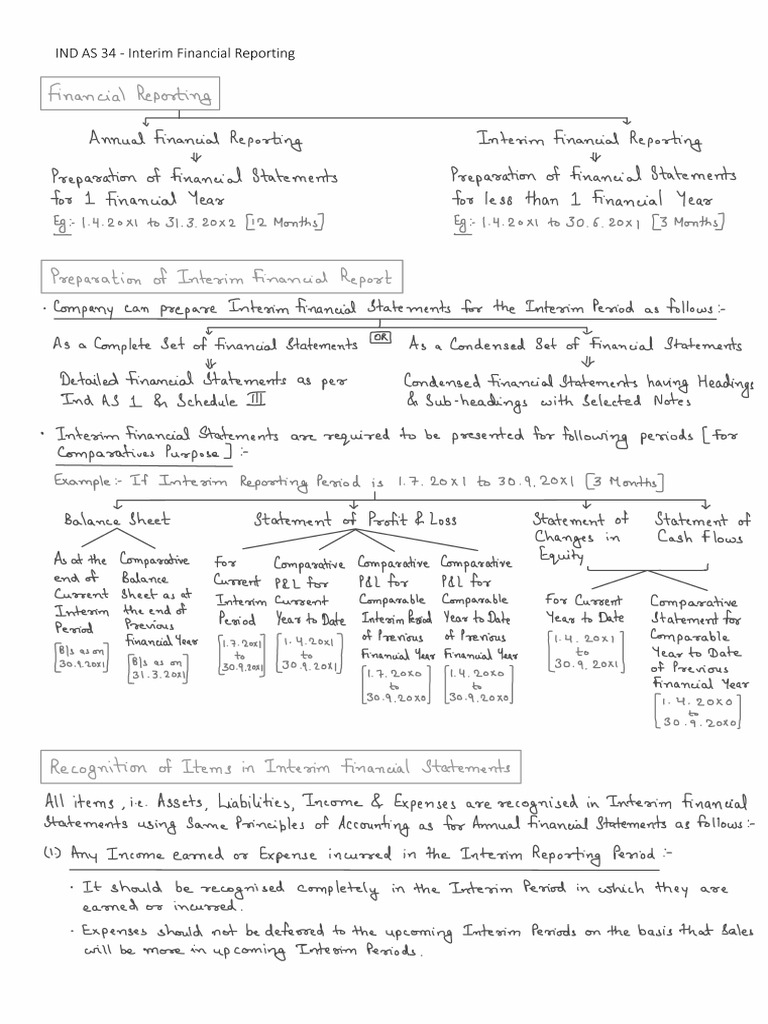 IND AS 34 - Interim Financial Reporting
Financial Reporting
Annual Financial Reporting
Preparation of Financial Statements
for 1 Financial Year
Eg:- 1.4.20x1 to 31.3.20x2 [12 Months]
Interim Financial Reporting
Preparation of Financial Statements
for less than 1 Financial Year
Eg:- 1.4.20x1 to 30.6.20x1 [3 Months]
Preparation of Interim Financial Report
· Company can prepare Interim Financial Statements for the Interim Period as follows:-
OR
As a Complete Set of Financial Statements
Detailed Financial Statements as per
Ind AS 1 & Schedule III
As a Condensed Set of Financial Statements
Condensed Financial Statements having Headings
& Sub-headings with Selected Notes
· Interim Financial Statements are required to be presented for following periods [For
Comparatives Purpose] :-
Example:- If Interim Reporting Period is 1.7.20x1 to 30.9.20x1 [3 Months]
Balance Sheet
As at the
end of
Current
Interim
Period
[B/s as on
30.9.20x1]
Comparative
Balance
Sheet as at
the end of
Previous
Financial Year
[B/s as on
31.3.20x1]
Statement of Profit & Loss
For
Current
Interim
Period
[1.7.20x1
to
30.9.20x1]
Comparative
P&L for
Current
Year to Date
[1.4.20x1
to
30.9.20x1]
Comparative
P&L for
Comparable
Interim Period
of Previous
Financial Year
[1.7.20x0
to
30.9.20x0]
Comparative
P&L for
Comparable
Year to Date
of Previous
Financial Year
[1.4.20x0
to
30.9.20x0]
Statement of
Changes in
Equity
Statement of
Cash Flows
For Current
Year to Date
[1.4.20x1
to
30.9.20x1]
Comparative
Statement for
Comparable
Year to Date
of Previous
Financial Year
[1.4.20x0
to
30.9.20x0]
Recognition of Items in Interim Financial Statements
All items, i.e. Assets, Liabilities, Income & Expenses are recognised in Interim Financial
Statements using Same Principles of Accounting as for Annual Financial Statements as follows:-
(1) Any Income earned or Expense incurred in the Interim Reporting Period:-
· It should be recognised completely in the Interim Period in which they are
earned or incurred.
· Expenses should not be deferred to the upcoming Interim Periods on the basis that Sales
will be more in upcoming Interim Periods.